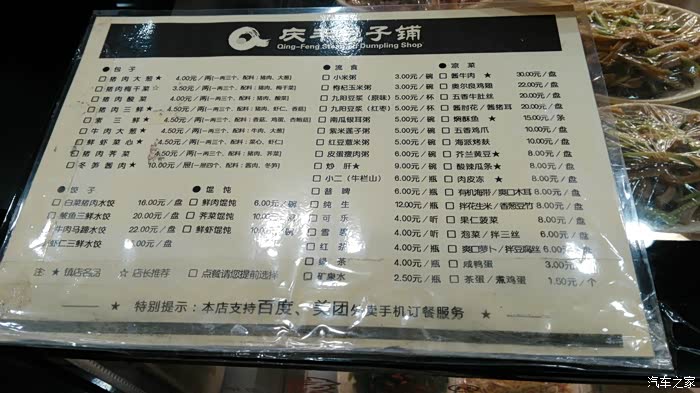 庆丰包子铺
Qing-Feng Steamed Dumpling Shop
包子
猪肉大葱★ 4.00元/两(一两三个、配料：猪肉、大葱)
猪肉梅干菜☆ 3.50元/两(一两三个、配料：猪肉、梅干菜)
猪肉酸菜 4.00元/两(一两三个、配料：猪肉、酸菜)
猪肉三鲜★ 4.50元/两(一两三个、配料：猪肉、虾仁、香菇)
素三鲜★ 4.50元/两
牛肉大葱★ 4.50元/两
鲜虾菜心★ 4.50元/两(一两三个、配料：菜心、虾仁)
猪肉荠菜 4.50元/两(一两三个、配料：猪肉、荠菜)
冬笋酱肉★ 10.00元/
饺子
白菜猪肉水饺 16.00元/盘
鲅鱼三鲜水饺 20.00元/盘
牛肉马蹄水饺 22.00元/盘
虾仁三鲜水饺
馄饨
鲜肉馄饨 6.00元/碗
荠菜馄饨
鲜虾馄饨
流食
小米粥 3.00元/碗
枸杞玉米粥 3.00元/碗
九阳豆浆（原味） 5.00元/杯
九阳豆浆（红枣） 5.00元/杯
南瓜银耳粥 5.00元/碗
紫米莲子粥 5.00元/碗
红豆薏米粥 5.00元/碗
皮蛋瘦肉粥 6.00元/碗
炒肝★ 9.00元/碗
小二（牛栏山）
普啤 6.00元/瓶
纯生 12.00元/瓶
可乐 4.00元/听
雪碧 4.00元/听
红茶 4.00元/瓶
绿茶 4.00元/瓶
矿泉水 2.50元/瓶
凉菜
酱牛肉★ 30.00元/盘
奥尔良鸡翅 22.00元/盘
五香牛肚丝 20.00元/盘
酱肘花/酱猪耳 20.00元/盘
焖酥鱼★ 15.00/条
五香鸡爪 10.00元/盘
海派烤麸 10.00元/盘
芥兰黄豆★ 8.00元/盘
酸辣瓜条★ 8.00元/盘
肉皮冻★ 8.00元/盘
有机腐带/爽口木耳 8.00元/盘
拌花生米/香葱豆竹 8.00元/盘
果仁菠菜 8.00元/盘
泡菜/拌三丝 6.00元/盘
爽口萝卜/拌豆腐丝 6.00元/盘
咸鸭蛋 3.00元/
茶蛋/熏鸡蛋 1.50元/个
注：★镇店名品 ☆店长推荐 □点餐请您提前选择
特别提示：本店支持百度、美团外卖手机订餐服务★
汽车之家